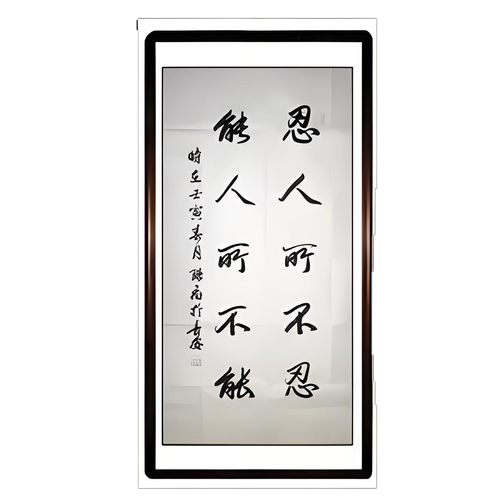 忍人所不忍
能人所不能
時在壬寅春月